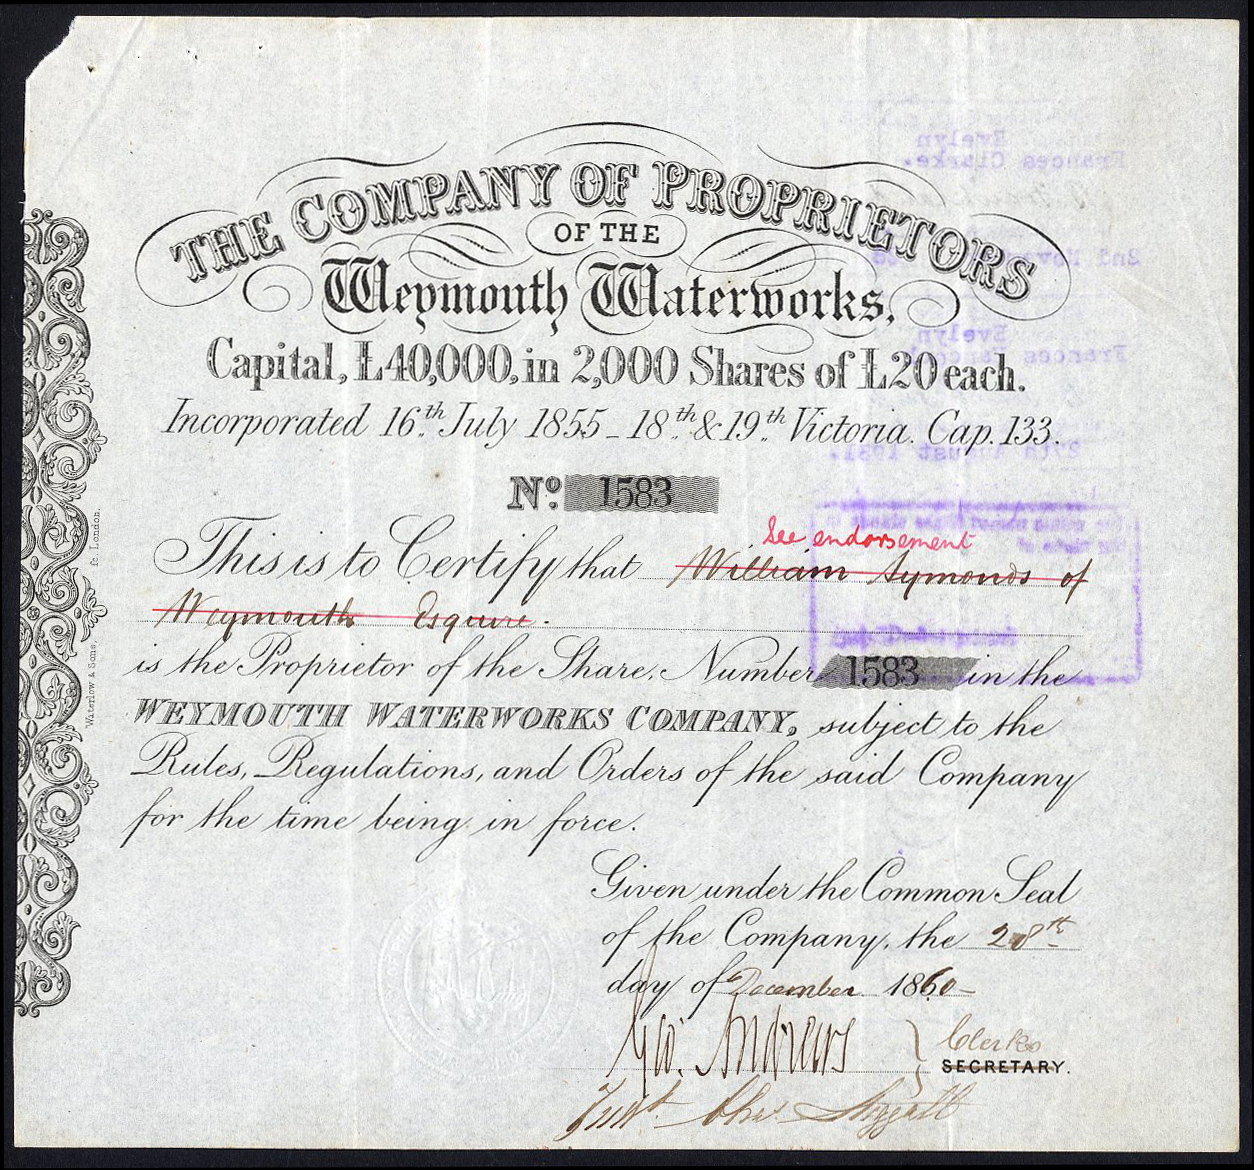 THE COMPANY OF PROPRIETORS
OF THE
Weymouth Waterworks,
Capital, £40,000, in 2,000 Shares of £20 each.
Incorporated 16th July 1855 _ 18th & 19th Victoria. Cap. 133.
No. 1583
See endorsement
This is to Certify that William Symonds of
Weymouth Esquire.
is the Proprietor of the Share, Number 1583 in the
WEYMOUTH WATERWORKS COMPANY, subject to the
Rules, Regulations, and Orders of the said Company
for the time being in force.
Given under the Common Seal
of the Company, the 28th
day of December 1860
Geo. Andrews } Clerks
SECRETARY.
Waterlow & Sons, London.
Evelyn
Frances Clarke.
2nd
Evelyn
Frances
27th August 1931.